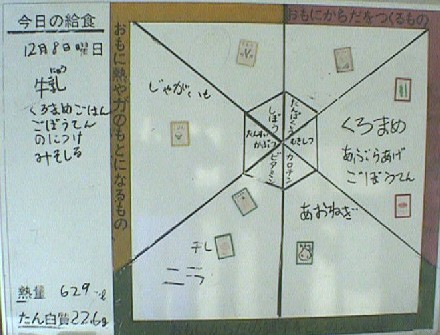 今日の給食
12月8日 曜日
牛乳
くろまめごはん
ごぼうてん
のにつけ
みそしる
熱量 629
たん白質 22.6g
おもに熱や力のもとになるもの
おもにからだをつくるもの
じゃがいも
くろまめ
あぶらあげ
ごぼうてん
あおねぎ
干し
しぼう
たんぱくしつ
むきしつ
カロチン
ビタミン